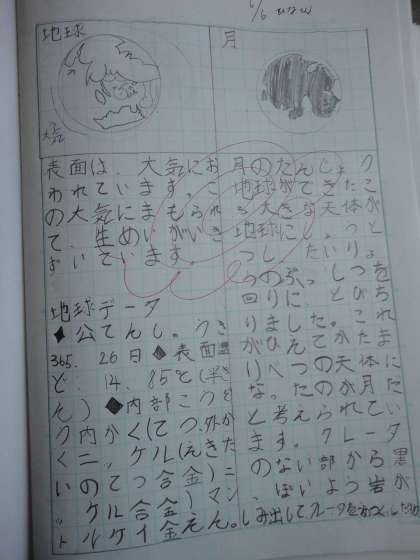 6/6
地球
大気
表面は、大気にお
われています。こ
の大気にまもられ
て、生めいがいき
ずいています。
地球データ
◆公てんし。うき
365.26日◆表面温
ど:14.85℃(半き
ん)◆内部こうぞ
ク内かく(てつ,外か
くニッケル(えきた
いのてつ合金)ニ
ッケル合金)マン
トルケイ金えん。
月
月のたんじょ
地球ができたこ
ろ大きな天体が
地球にしょうと
つし、たいりょ
うのぶっしつを
回りにとびち
りました。これ
がひえてかたま
りべつの天体に
な。たのが月た
と考えられてい
ます。クレータ
のない部から黒
、ぽいよう岩が
しみ出して、クレータを